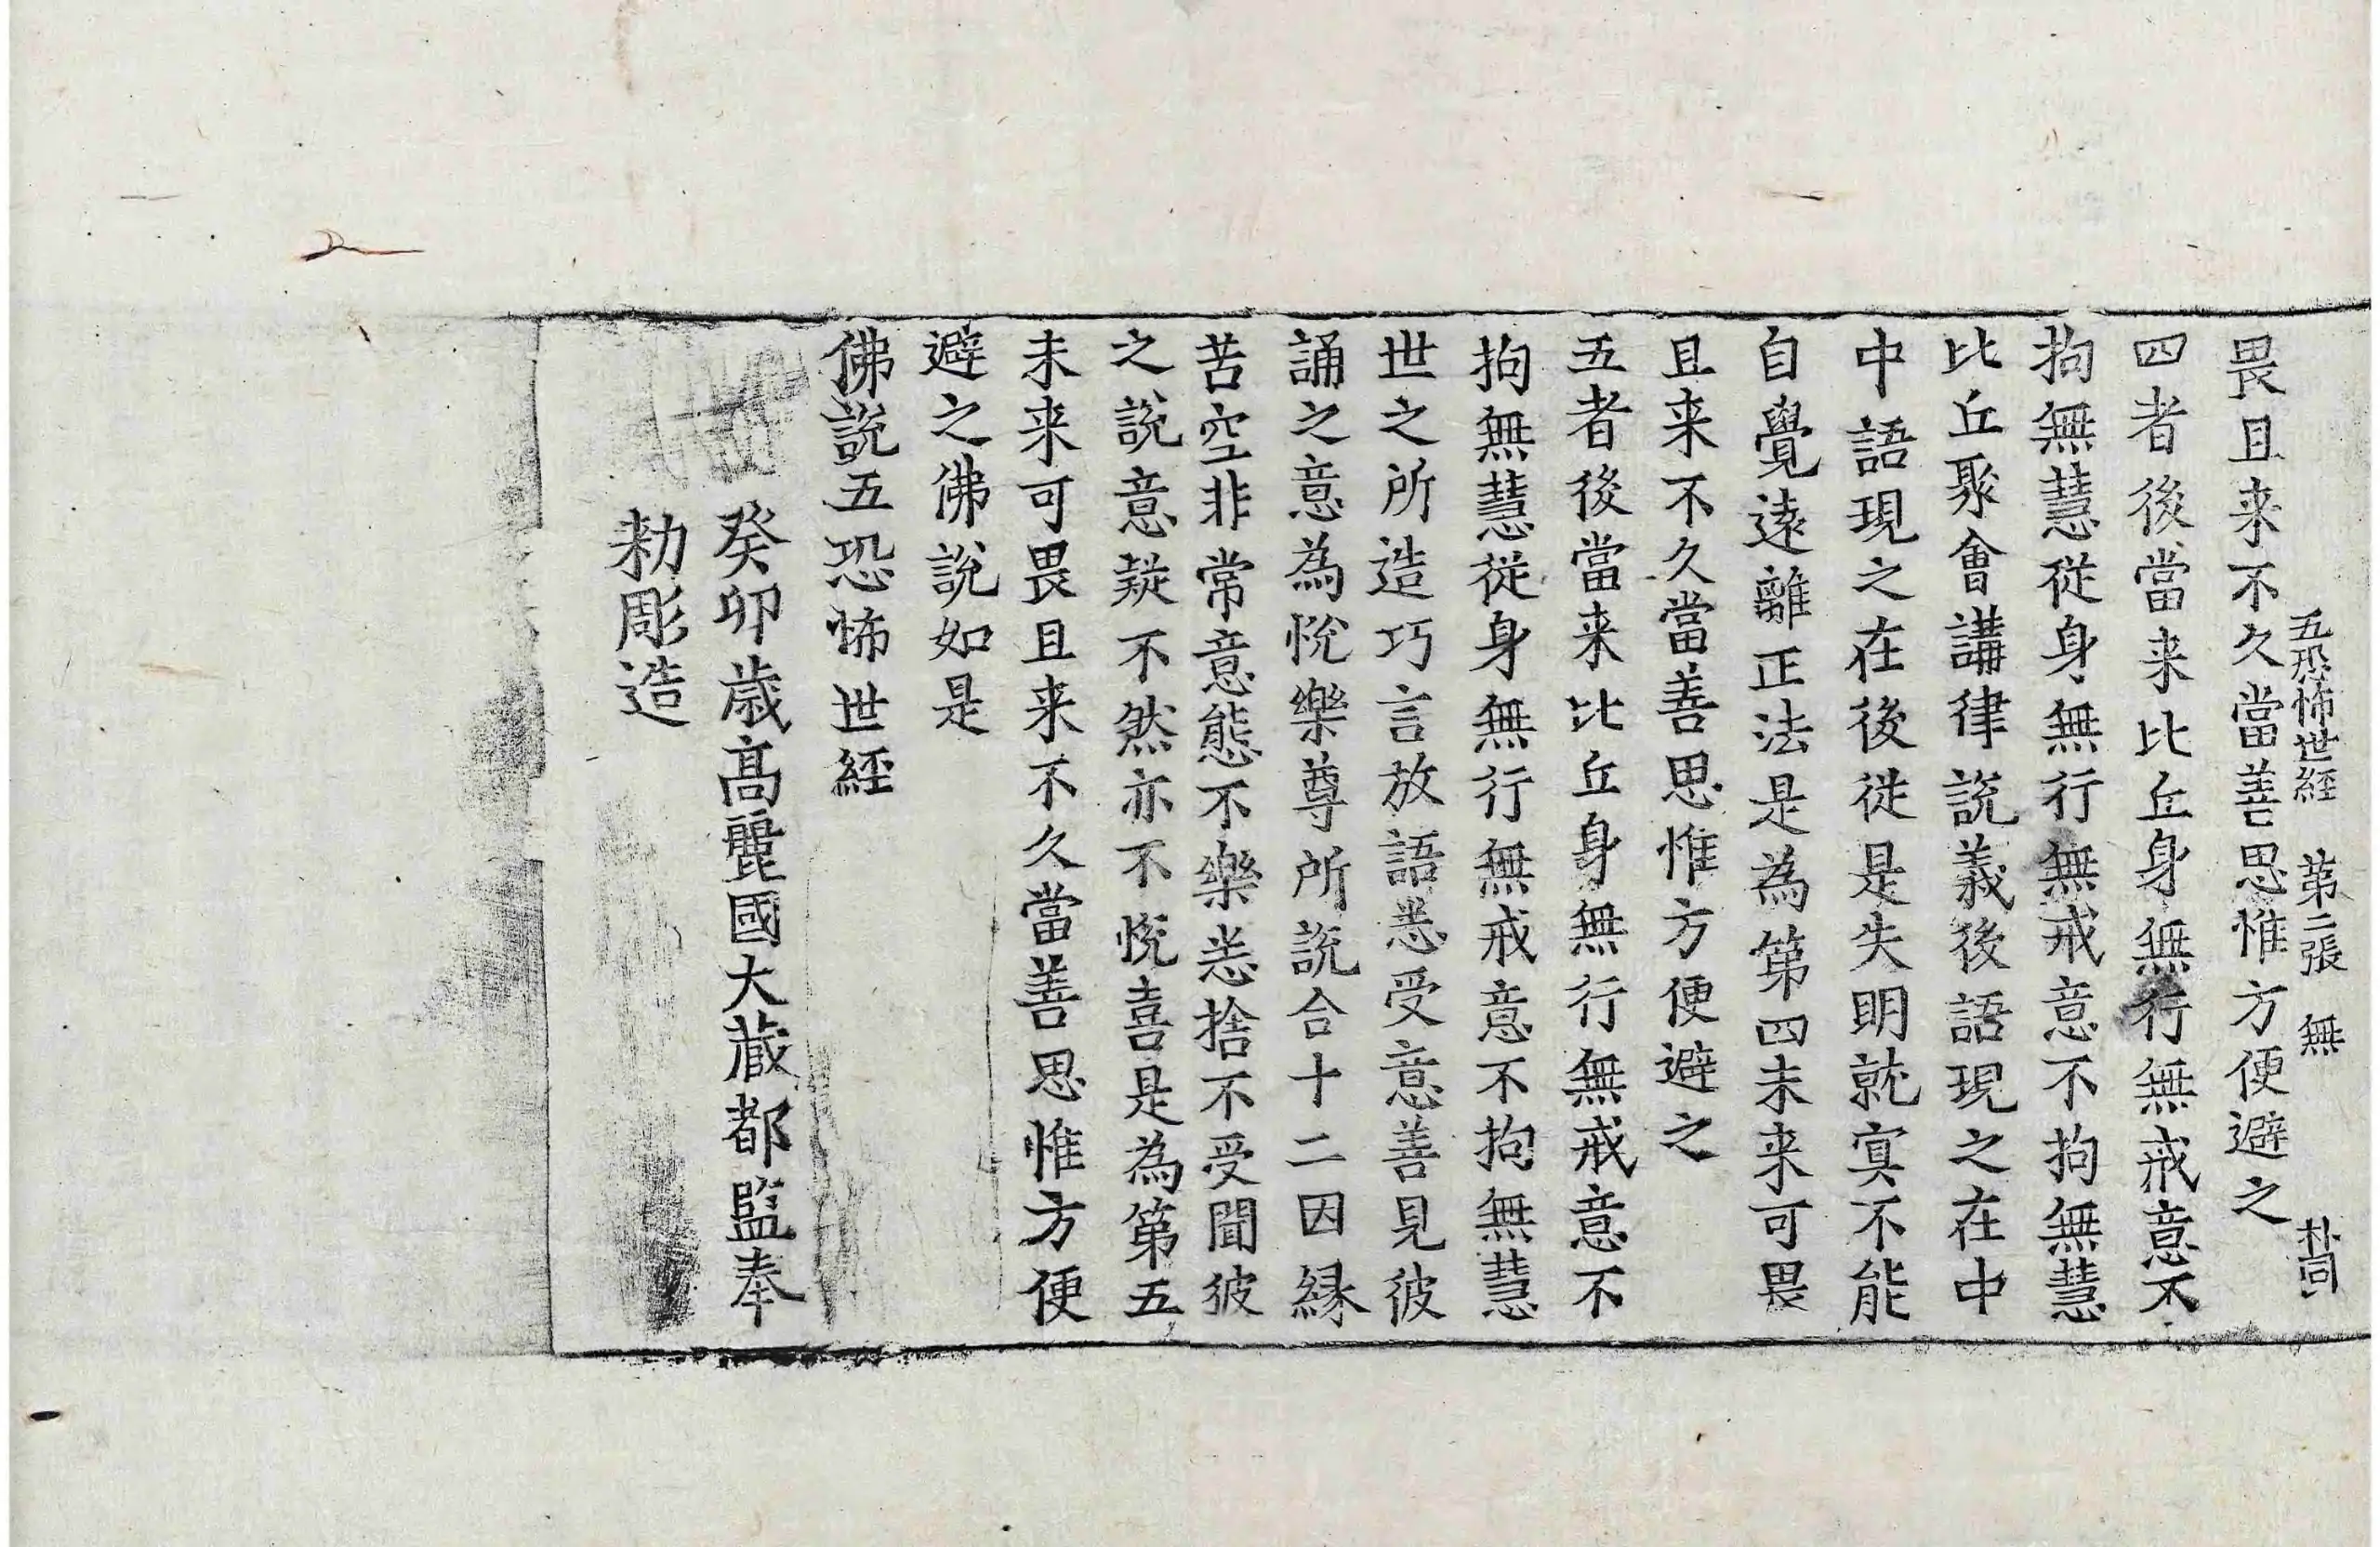 五恐怖世經　第二張　無　朴同
畏且来不久當善思惟方便避之
四者後當来比丘身無行無戒意不
拘無慧從身無行無戒意不拘無慧
比丘聚會講律說義後語現之在中
中語現之在後從是失明就冥不能
自覺遠離正法是為第四未来可畏
且来不久當善思惟方便避之
五者後當来比丘身無行無戒意不
拘無慧從身無行無戒意不拘無慧
世之所造巧言放語悉受意善見彼
誦之意為悅樂尊所說合十二因緣
苦空非常意態不樂恙捨不受聞彼
之說意疑不然亦不悅喜是為第五
未来可畏且来不久當善思惟方便
避之佛說如是
佛說五恐怖世經
癸卯歲高麗國大藏都監奉
勑彫造